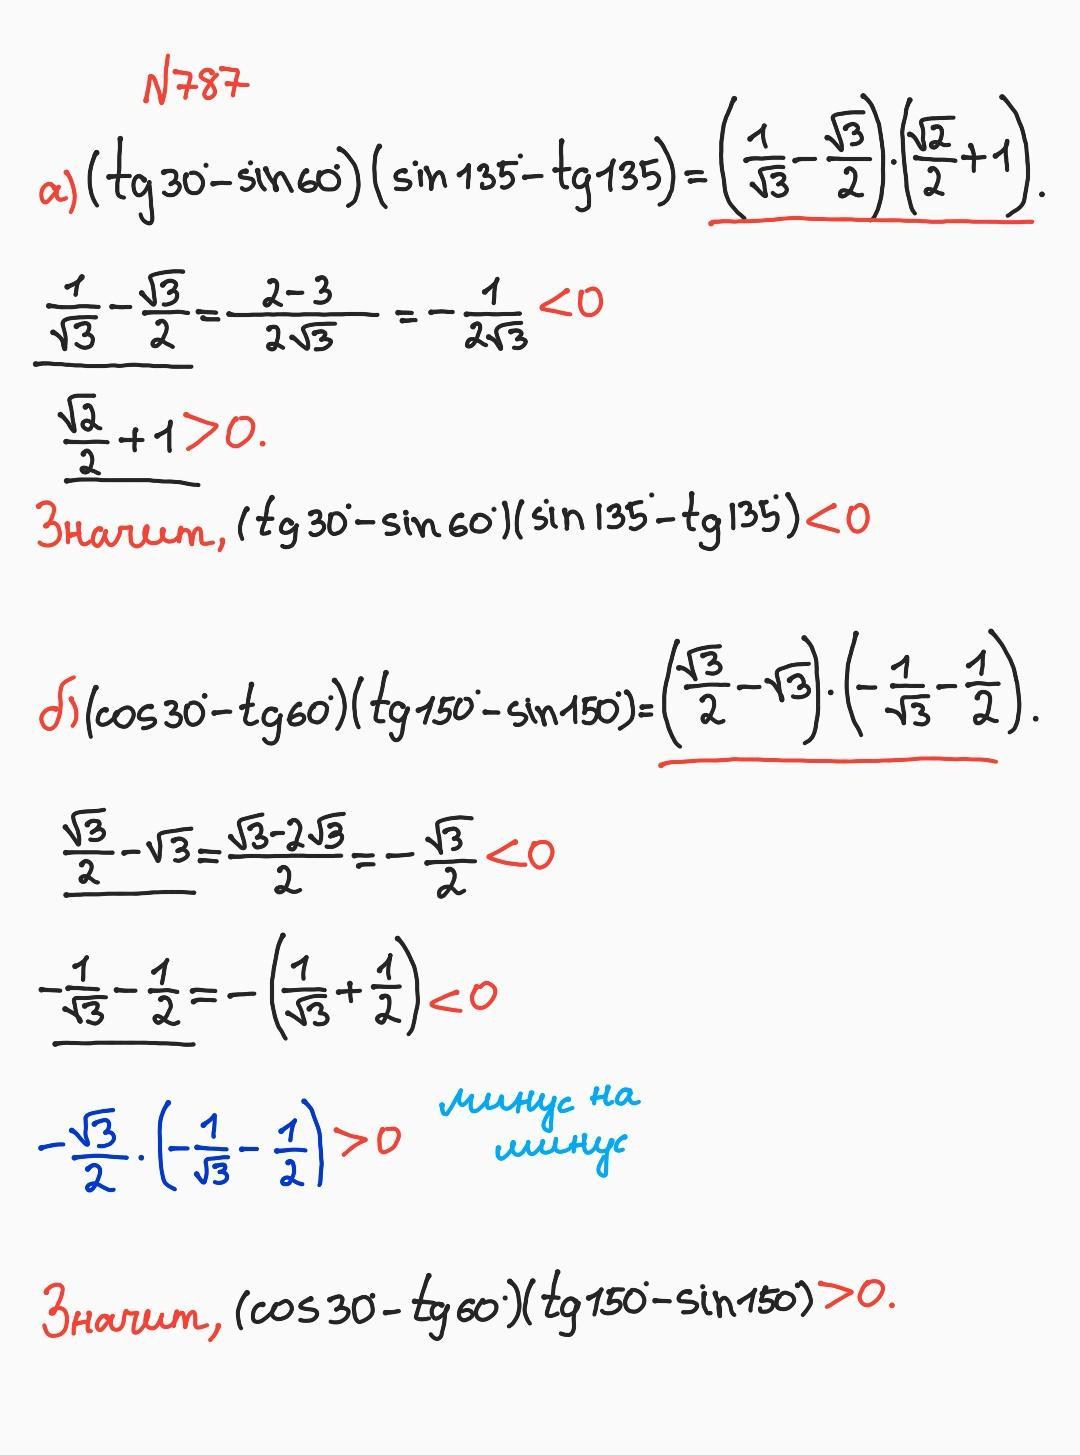 N787
а) (tg30°-sin60°)(sin135°-tg135°)=(1/√3-√3/2)·(√2/2+1).
1/√3-√3/2=2-3/2√3=-1/2√3<0
√2/2+1>0.
Значит, (tg30°-sin60°)(sin135°-tg135°)<0
б) (cos30°-tg60°)(tg150°-sin150°)=(√3/2-√3)·(-1/√3-1/2).
√3/2-√3=√3-2√3/2=-√3/2<0
-1/√3-1/2=-(1/√3+1/2)<0
-√3/2·(-1/√3-1/2)>0 минус на
минус
Значит, (cos30°-tg60°)(tg150°-sin150°)>0.